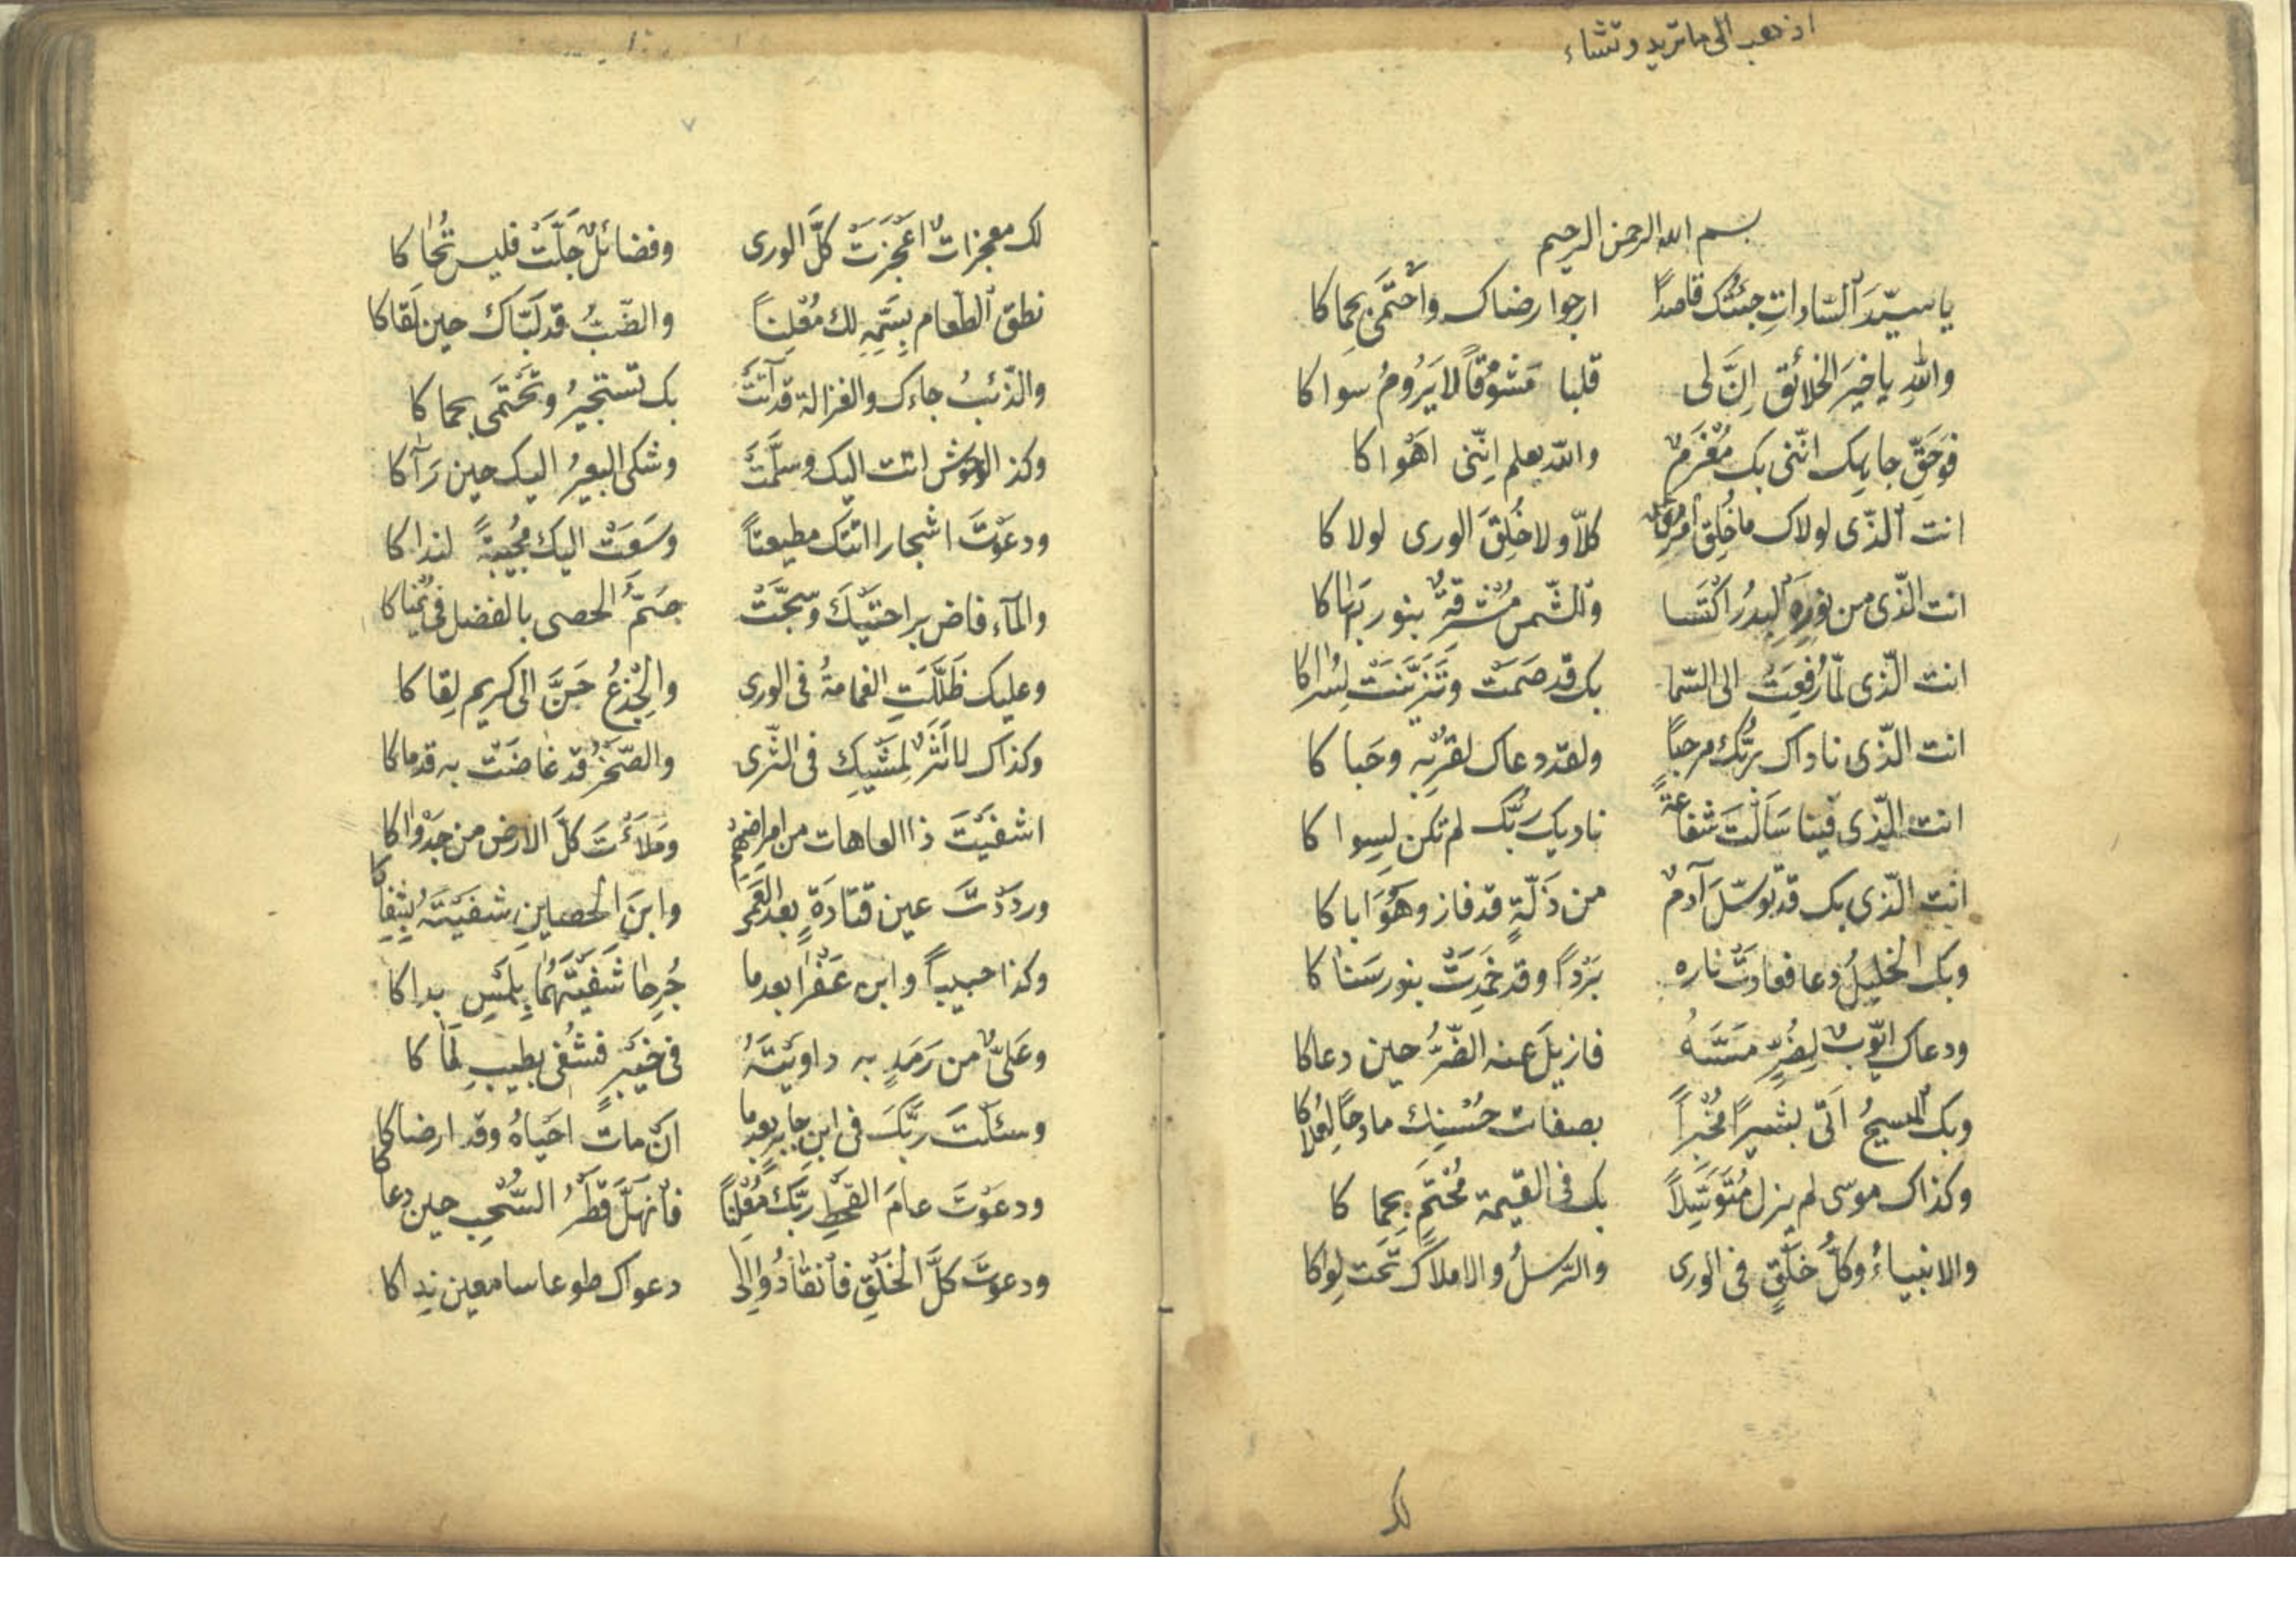 اذهب الى ما تريد وتشاء
بسم الله الرحمن الرحيم
يا سيّدَ السّاداتِ جئتُك قاصدًا ارجوا رضاك واَحْتَمى بحِماكا
واللهِ يا خيرَ الخلائق اِنَّ لى قلبا مَشُوقاً لا يَرُومُ سواكا
فوَحَقِّ جاهِك انّنى بك مُغْرَمٌ والله يعلم اِنّنى اهْواكا
انت الّذى لولاك ما خُلِق امْرِؤٌ كلّا ولا خُلِقَ الورى لولاكا
انت الّذى من نورِهِ البدرُ اكْتَسا والشّمس مُشْرِقَةٌ بنور بَهاكا
انت الّذى لمّا رُفِعْتَ الى السّما بك قد سَمَتْ وَتَزَيَّنَتْ لِسُراكا
انت الّذى ناداك ربُّك مرحبًا ولقد دعاك لقُرْبِه وحَباكا
انت الّذى فينا سَاَلْتَ شفاعةً ناديك ربُّك لم تكن لِسِواكا
انت الّذى بك قد توسّلَ آدمٌ من ذَلّةٍ قد فاز وهُوَ اباكا
وبك الخليلُ دعا فعادتْ ناره بَرْدًا وقد خَمِدَتْ بنور سَناكا
ودعاك ايّوبٌ لِضُرٍّ مَسَّهُ فازيلَ عنه الضّرُّ حين دعاكا
وبك المسيحُ اَتَى بشيرًا مُخْبِراً بصفات حُسْنِك مادحًا لِعُلاكا
وكذاك موسى لم يزل مُتَوَسِّلاً بك فى القيمة مُحْتَمٍ بحِماكا
والانبياءُ وكلُّ خَلْقٍ فى الورى والرّسلُ والاملاكُ تَحْت لِواكا
لك
لك معجزاتٌ اَعْجَزَتْ كلَّ الورى وفضائلٌ جَلَّتْ فليس تُحاكا
نطق الطّعام بِسَمِّهِ لك مُعْلِنًا والضّبُّ قد لبّاك حين لَقاكا
والذّئبُ جاءك والغزالة قد اَتَتْ بك تستجيرُ وتَحْتَمى بحماكا
وكذا الوحوش اتت اليك وسلَّمَتْ وشكى البعيرُ اليك حين رَآكا
ودعوْتَ اشجارا اتتك مطيعتاً وَسَعَتْ اليك مُجيبةً لنداكا
والمآء فاض براحتيْكَ وسبَّحَتْ صَمُّ الحصى بالفضل فى يُمْناكا
وعليك ظَلَّلَتِ الغمامةُ فى الورى والجِذْعُ حَنَّ الى كريم لِقاكا
وكذاك لا اَثَرٌ لِمَشْيِكَ فى الثّرى والصّخرُ قد غاضَتْ به قدماكا
اشفيْتَ ذا العاهات من امراضهم ومَلَأْتَ كلَّ الارض من جَدْواكا
ورددْتَ عين قتادَةٍ بعد العَمى وابنَ الحصينِ شفيْتَهُ بِشِفاكا
وكذا حبيباً وابن عَفْرَا بعدما جُرِحا شَفَيْتَهُما بِلَمْسِ يداكا
وعَلىٌّ من رَمَدٍ به داويْتَهُ فى خيْبَرٍ فشُفى بطيبِ لَماكا
وسئلْتَ ربَّكَ فى ابن جابرٍ بعدما انْ ماتَ احْياهُ وقد ارضاكا
ودعوْتَ عامَ القحْطِ ربَّكَ مُعْلِنًا فانْهَلَّ قَطْرُ السُّحْبِ حين دعاكا
ودعوتَ كلَّ الخَلْقِ فانقادُوا الى دعواك طوعا سامعين نِداكا